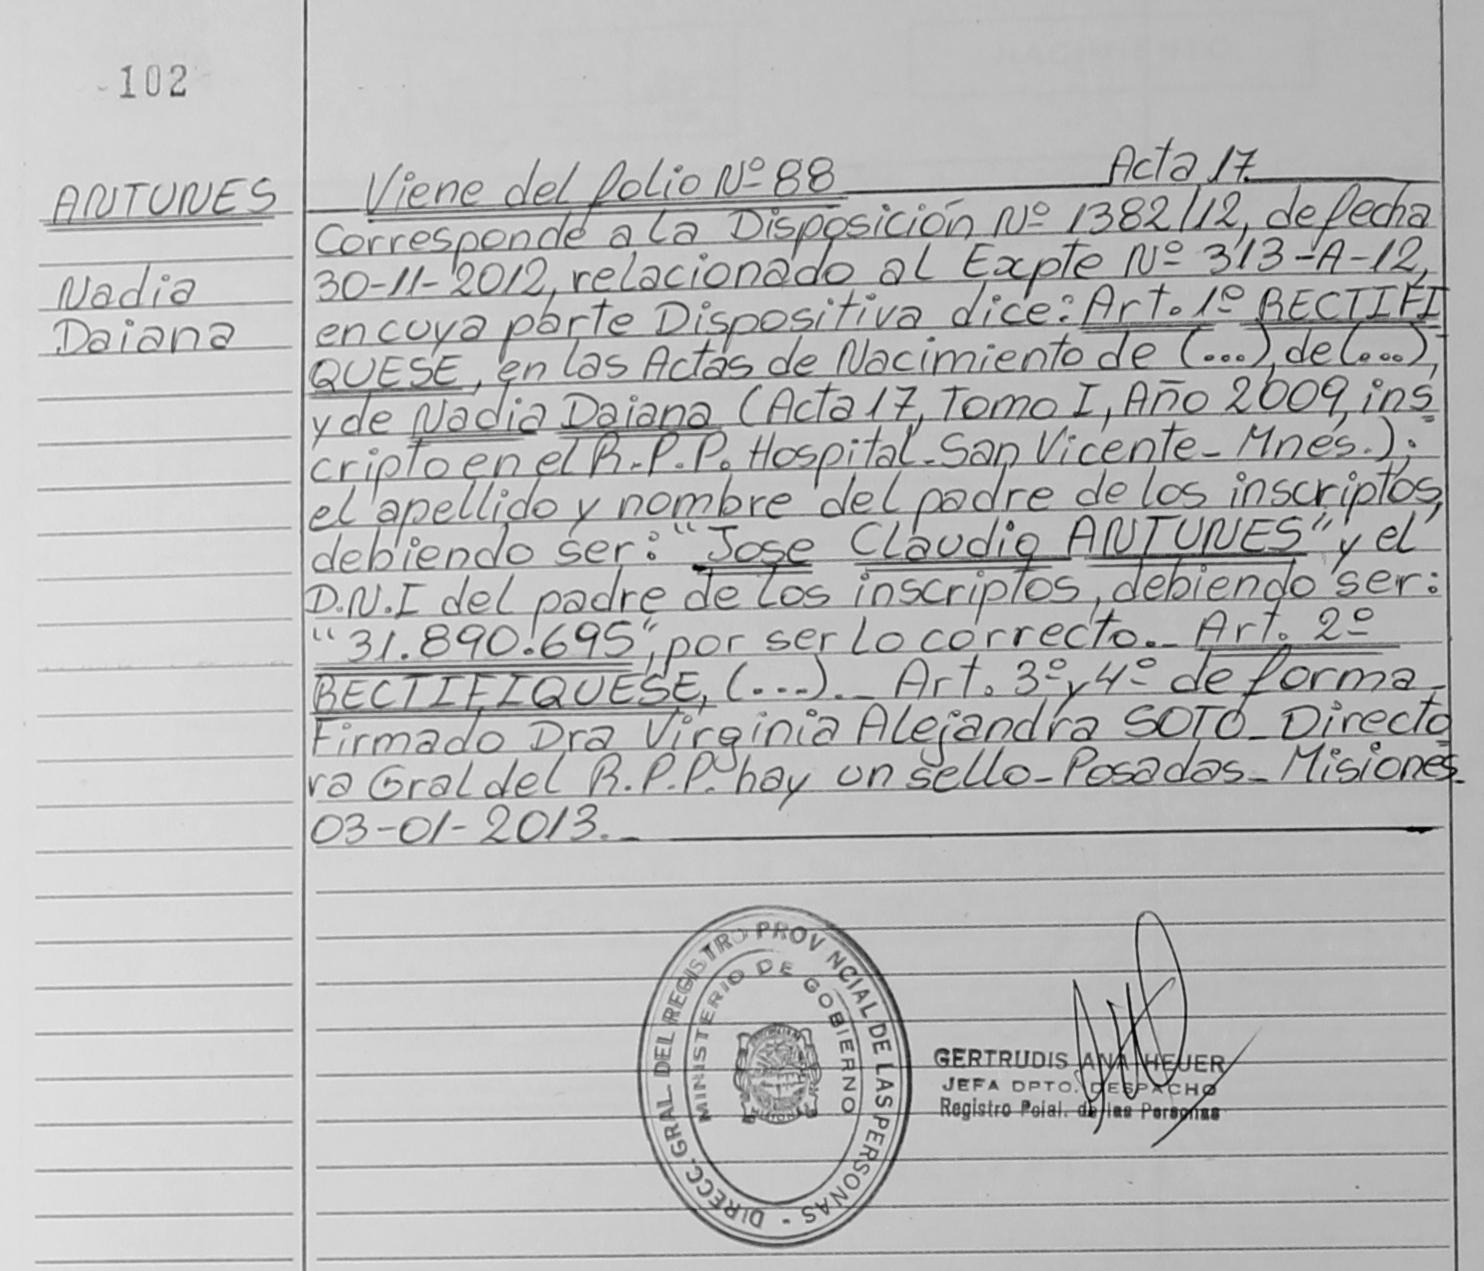 102
ANTUNES
Nadia
Daiana
Viene del folio Nº 88 Acta 17
Corresponde a la Disposición Nº 1382/12, de fecha
30-11-2012, relacionado al Expte Nº 313-A-12,
en cuya parte Dispositiva dice: Art. 1º RECTIFI
QUESE, en las Actas de Nacimiento de (...), de (...),
y de Nadia Daiana (Acta 17, Tomo I, Año 2009, ins
cripto en el R.P.P. Hospital - San Vicente - Mnes.);
el apellido y nombre del padre de los inscriptos,
debiendo ser: "Jose Claudio ANTUNES" y el
D.N.I del padre de los inscriptos, debiendo ser:
"31.890.695", por ser lo correcto.- Art. 2º
RECTIFIQUESE, (...).- Art. 3º y 4º de forma
Firmado Dra Virginia Alejandra SOTO - Directo
ra Gral del R.P.P. hay un sello - Posadas - Misiones.
03-01-2013.-
DIRECC. GRAL. DEL REGISTRO PROVINCIAL DE LAS PERSONAS -
MINISTERIO DE GOBIERNO
GERTRUDIS ANA HEUER
JEFA DPTO. DESPACHO
Registro Pcial. de las Personas